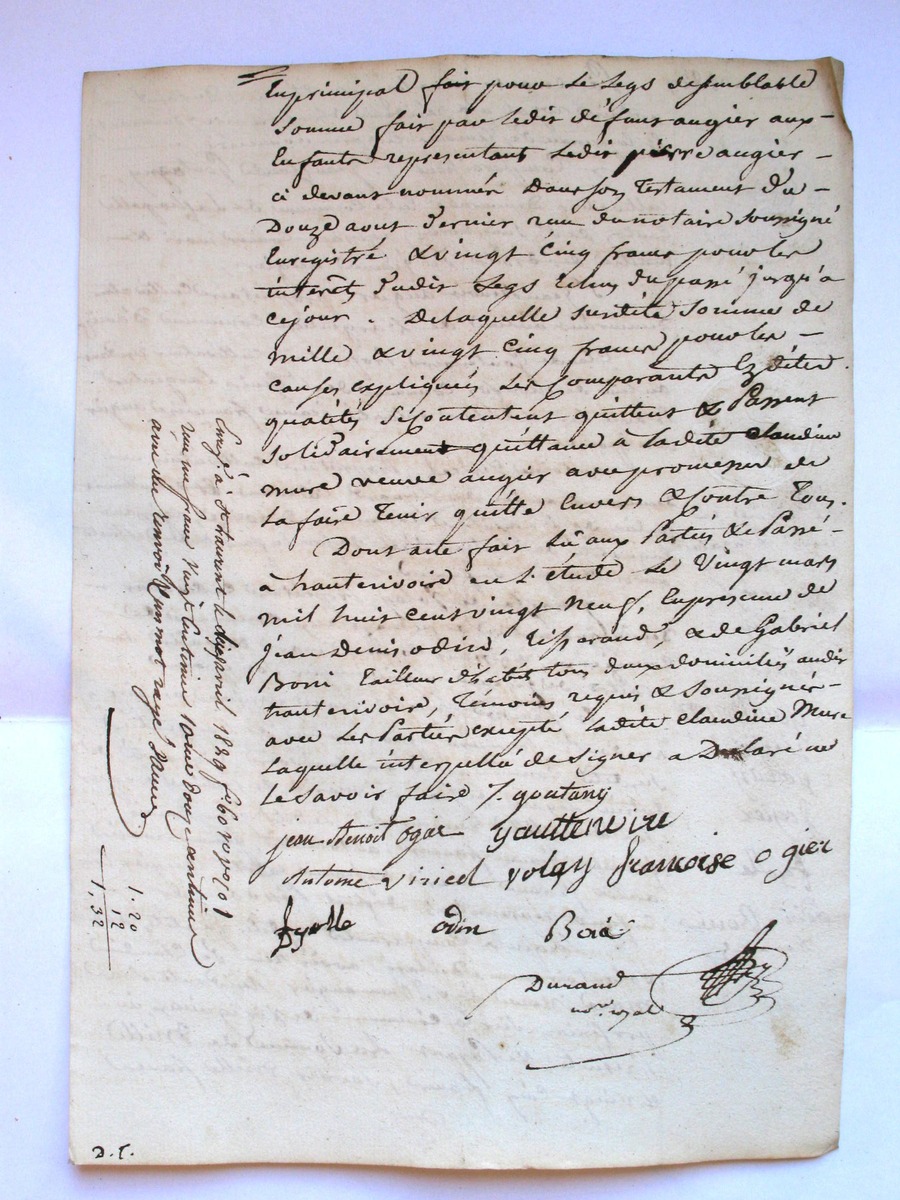 En principal fait pour le Legs de semblable
Somme fait par ledit défunt augier aux
Enfants representant ledit pierre augier
ci devant nommés Dans son Testament du
Douze aout Dernier reçu du notaire soussigné
Enregistré & vingt Cinq francs pour les
interêts dudit Legs Echus du passé jusqu'à
ce jour. De laquelle susdite somme de
mille & vingt Cinq francs pour les
causes expliquées les Comparants Ez dites
qualités se Contentent quittent & Passent
solidairement quittance à ladite Claudine
mure veuve augier avec promesse de
la faire Tenir quitte Envers & Contre Tous.
Dont acte fait lû aux Parties & Passé
à hauterivoire en l'étude le Vingt mars
mil huit cent vingt neuf, En presence de
jean Denis odin, Tisserand, & de Gabriel
Tailleur d'habits tous deux domiciliés audit
hauterivoire, Témoins requis & Soussignés
avec les Parties excepté ladite Claudine Mure
laquelle interpellée de signer a Declaré ne
le savoir faire
jean Benoit Ogier
Antoine françoise ogier
odin
Durand
nore royal
Enregé à St Laurent le avril 1829 fo 60
reçu un franc vingt Centimes 10eme douze centimes
avec un renvoi & un mot rayé
1.20
12
1,32
D. T.